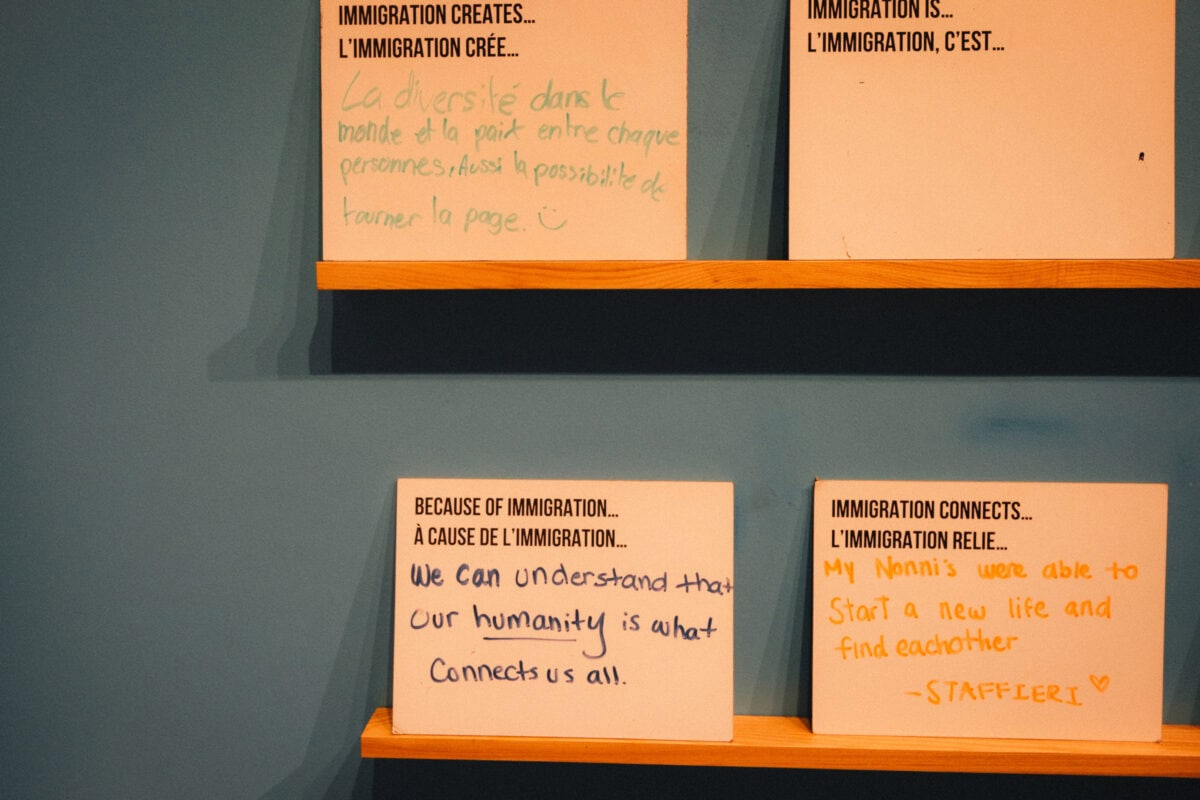 IMMIGRATION CREATES...
L'IMMIGRATION CRÉE...
La diversité dans le
monde et la paix entre chaque
personnes. Aussi la possibilité de
tourner la page. :)
IMMIGRATION IS...
L'IMMIGRATION, C'EST...
BECAUSE OF IMMIGRATION...
À CAUSE DE L'IMMIGRATION...
We can understand that
our humanity is what
Connects us all.
IMMIGRATION CONNECTS...
L'IMMIGRATION RELIE...
My Nonni's were able to
Start a new life and
find eachother
-STAFFIERI ♡